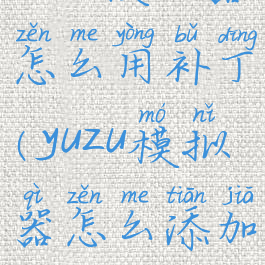 zěn me yòng bǔ dīng
怎么用补丁
mó nǐ
(yuzu模拟
qì zěn me tiān jiā
器怎么添加